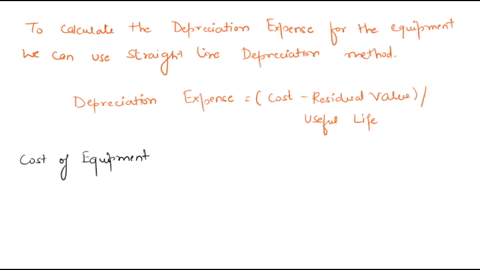 To calculate the Depreciation Expense for the equipment
We can use straight line Depreciation method.
Depreciation Expense = ( Cost - Residual Value) /
Useful Life
Cost of Equipment